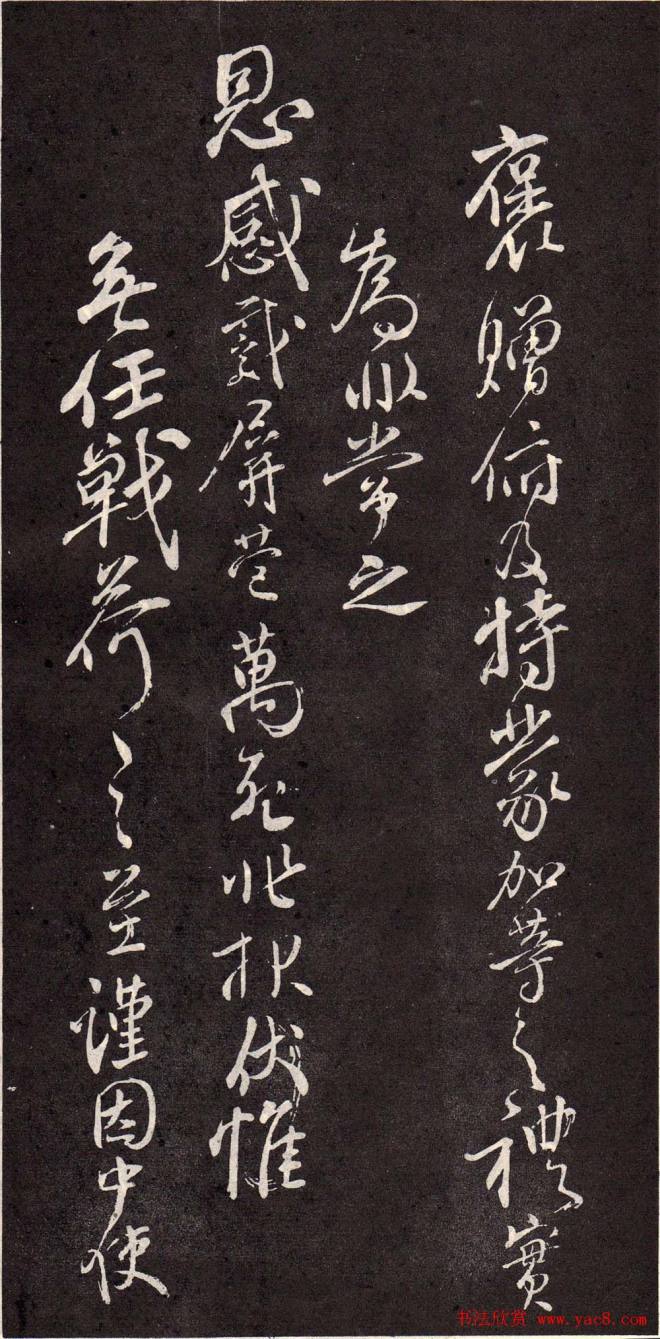 褒贈俯及特蒙加等之禮實
為非常之
恩感戴屏營萬死非報伏惟
無任戰荷之至謹因中使
书法欣赏 www.yac8.com